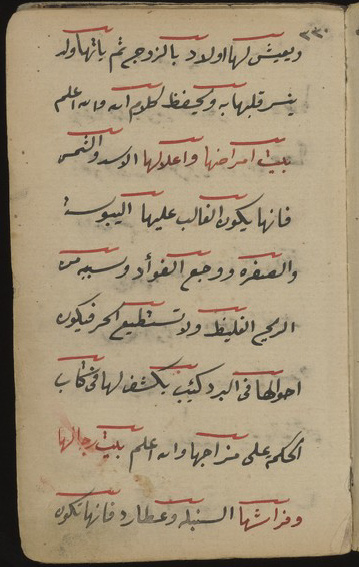 ٢٣٠
ويعيش لها اولاد بالزوجع ثم ياتها ولد
ينسر قلبها به ويحفظ كلام الله والله اعلم
بيت امراضها واعلالها الاسد والشمس
فانها يكون الغالب عليها اليبوسة
والصفره ووجع الفؤاد وسببه من
الريح الغليظ ولا تستطيع الحر فيكون
احوالها في البرد كئب يكشف لها في كتاب
الحكمه على مزاجها والله اعلم بيت رجالها
وفراشها السنبله وعطارد فانها تكون